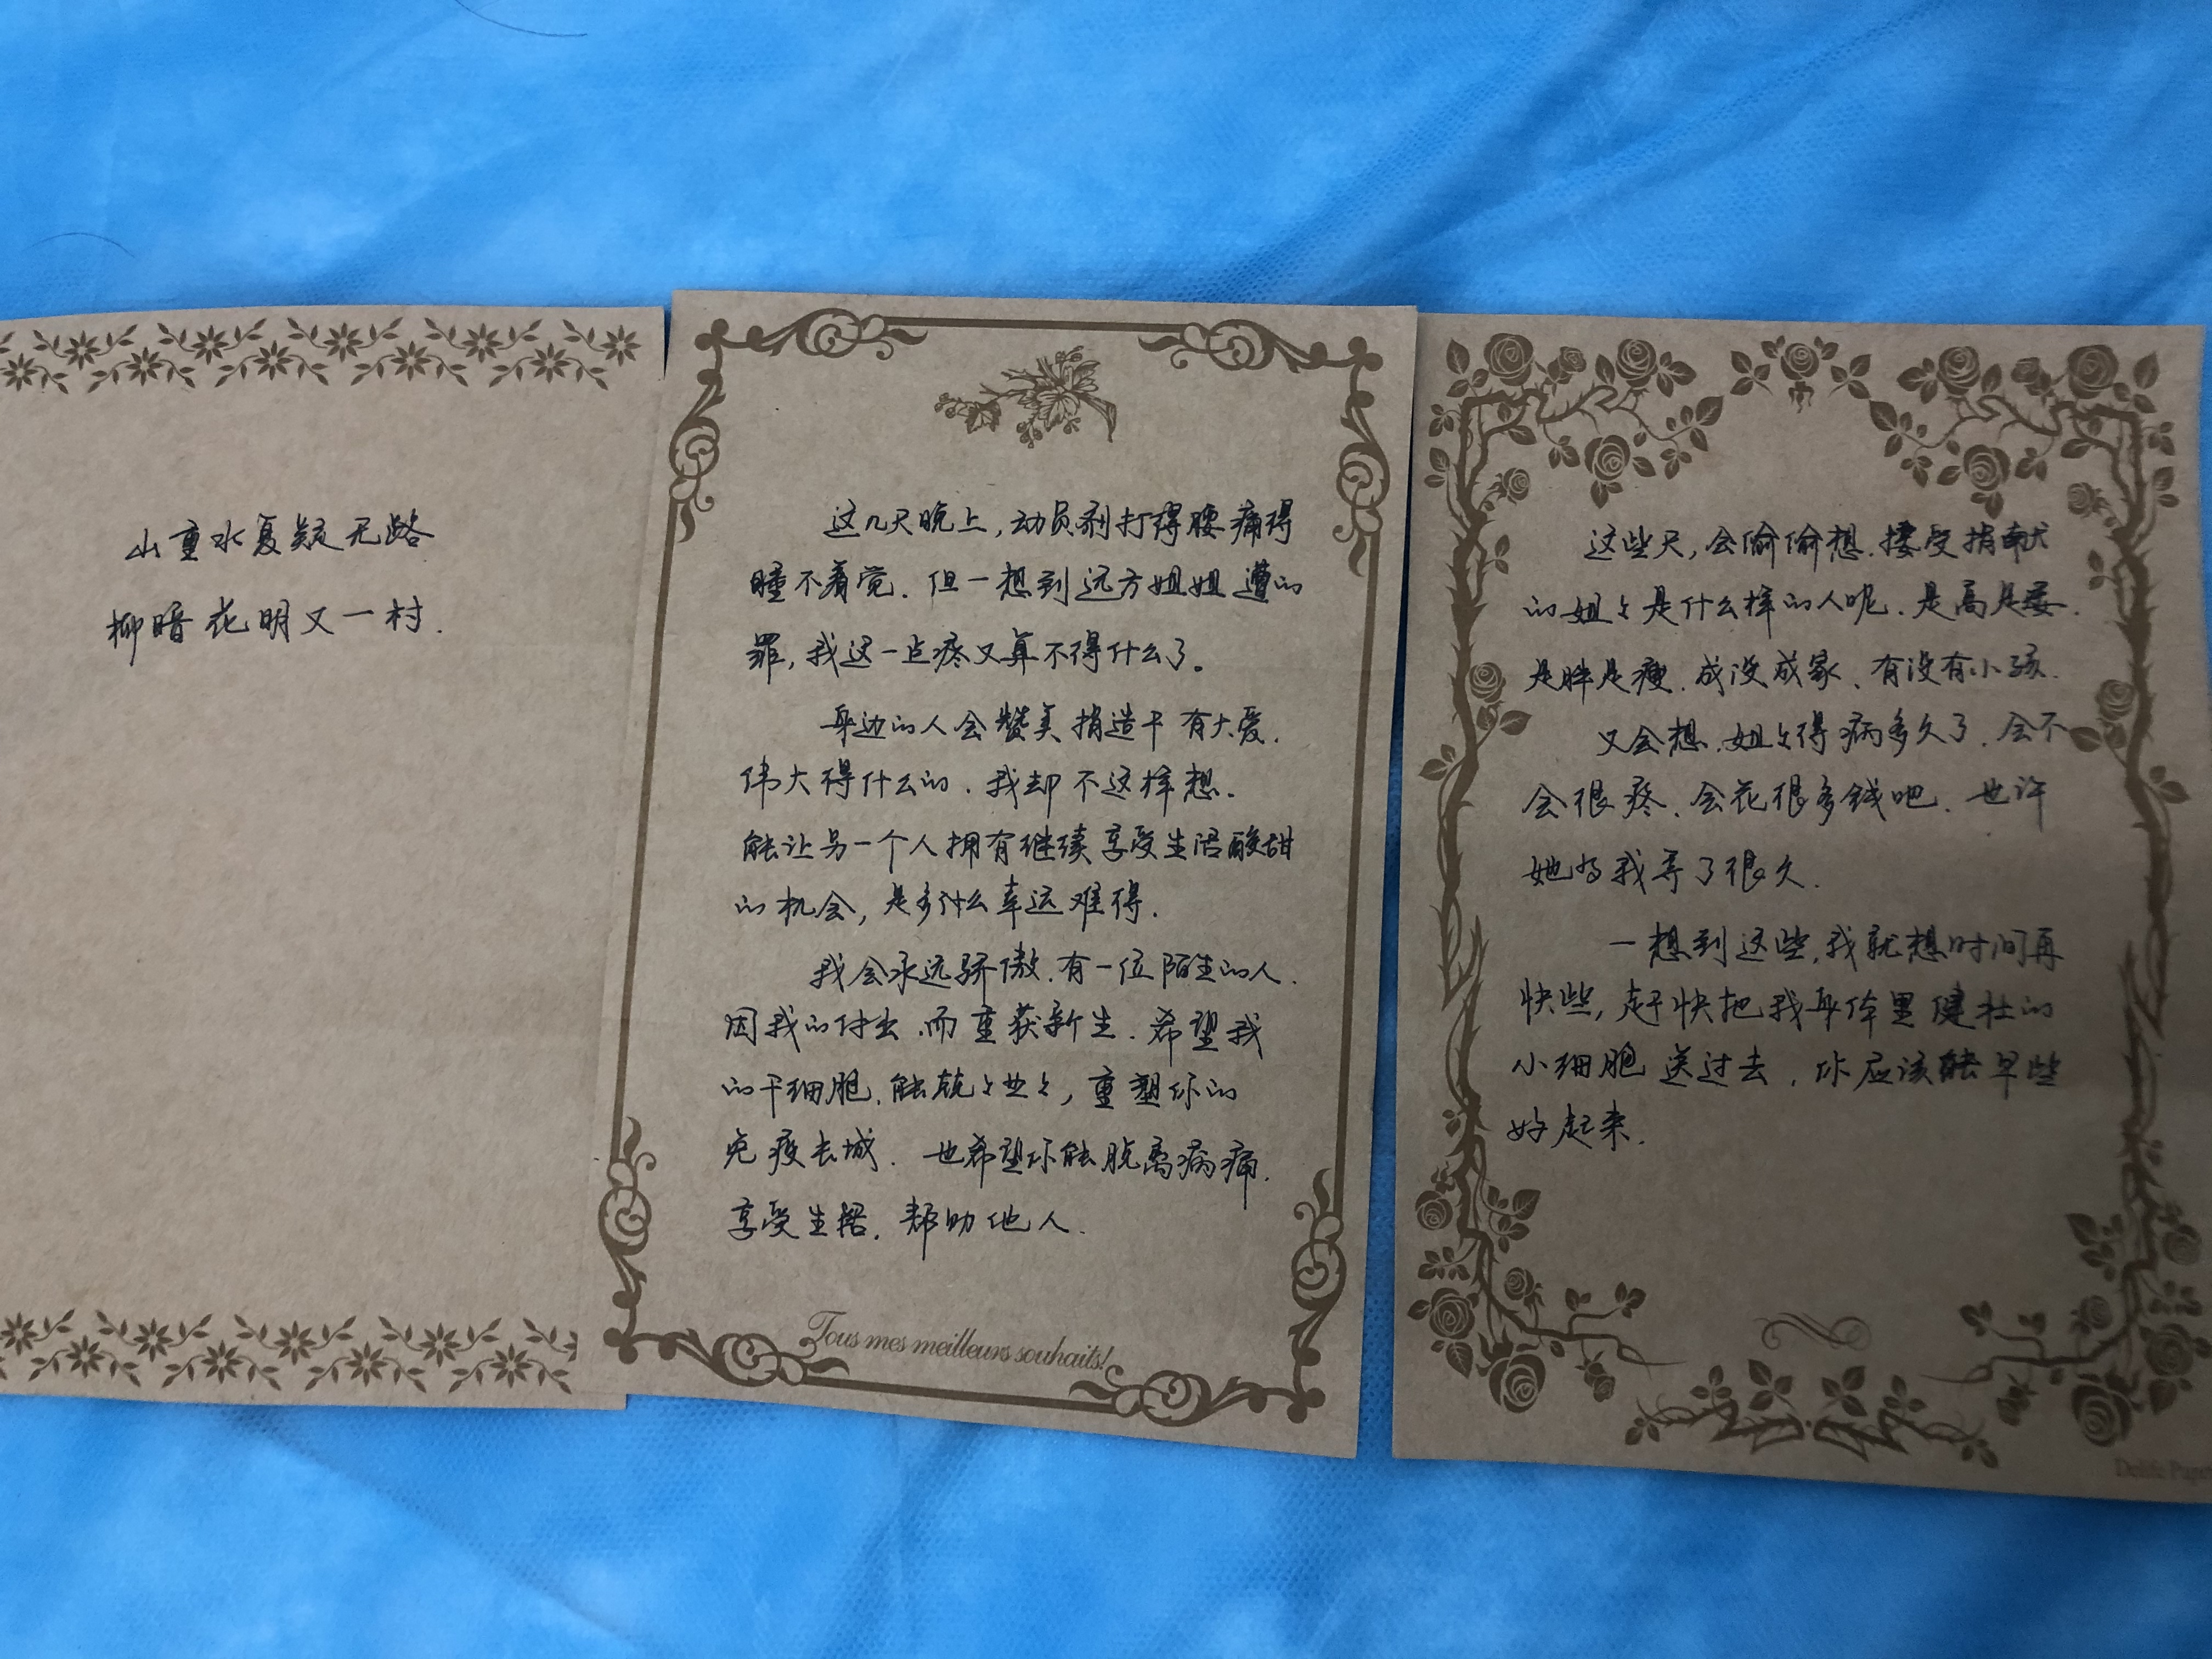 山重水复疑无路
柳暗花明又一村.
这几天晚上,动员剂打得腰痛得
睡不着觉.但一想到远方姐姐遭的
罪,我这一点疼又算不得什么了。
身边的人会赞美捐造干有大爱.
伟大得什么的.我却不这样想.
能让另一个人拥有继续享受生活酸甜
的机会,是多什么幸运难得.
我会永远骄傲.有一位陌生的人.
因我的付出.而重获新生.希望我
的干细胞.能兢々业々,重塑你的
免疫长城.也希望你能脱离病痛.
享受生活.帮助他人.
Tous mes meilleurs souhaits!
这些天,会偷偷想.接受捐献
的姐々是什么样的人呢.是高是矮.
是胖是瘦.成没成家、有没有小孩.
又会想.姐々得病多久了.会不
会很疼.会花很多钱吧.也许
她为我等了很久.
一想到这些,我就想时间再
快些,赶快把我身体里健壮的
小细胞送过去,你应该能早些
好起来.